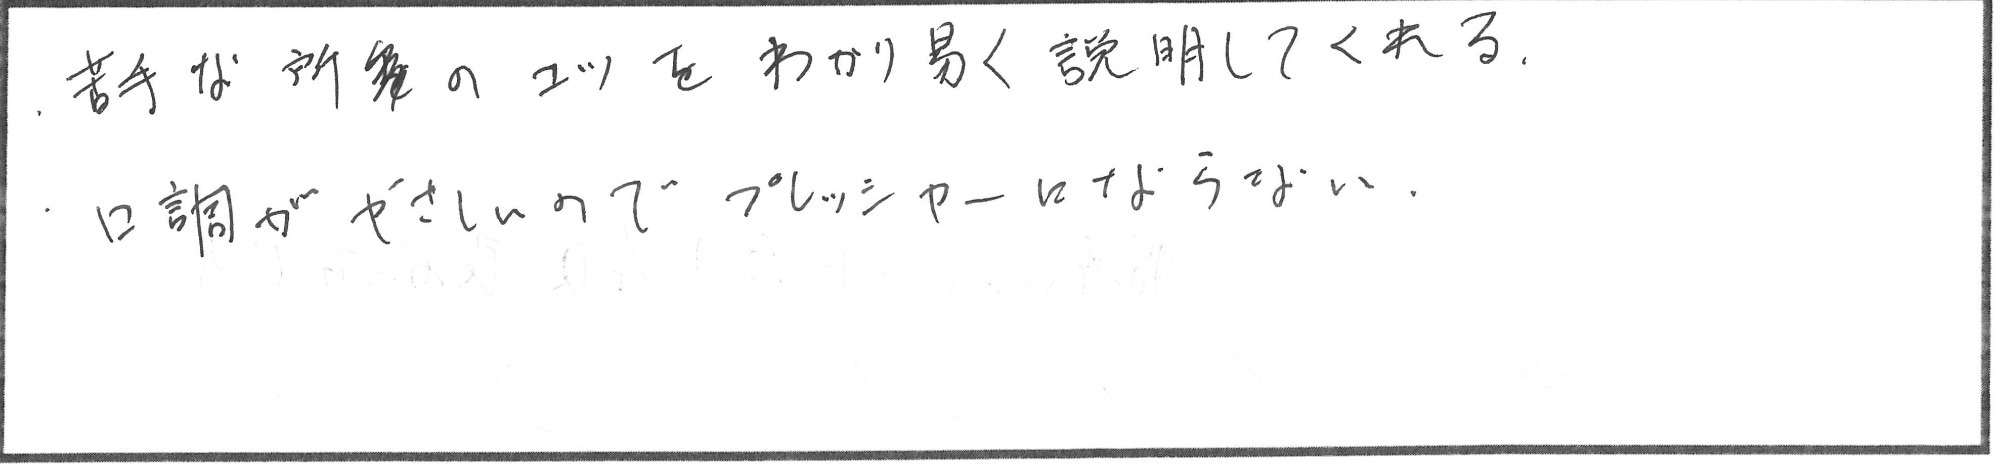 ・苦手な所のコツをわかり易く説明してくれる.
・口調がやさしいのでプレッシャーにならない.